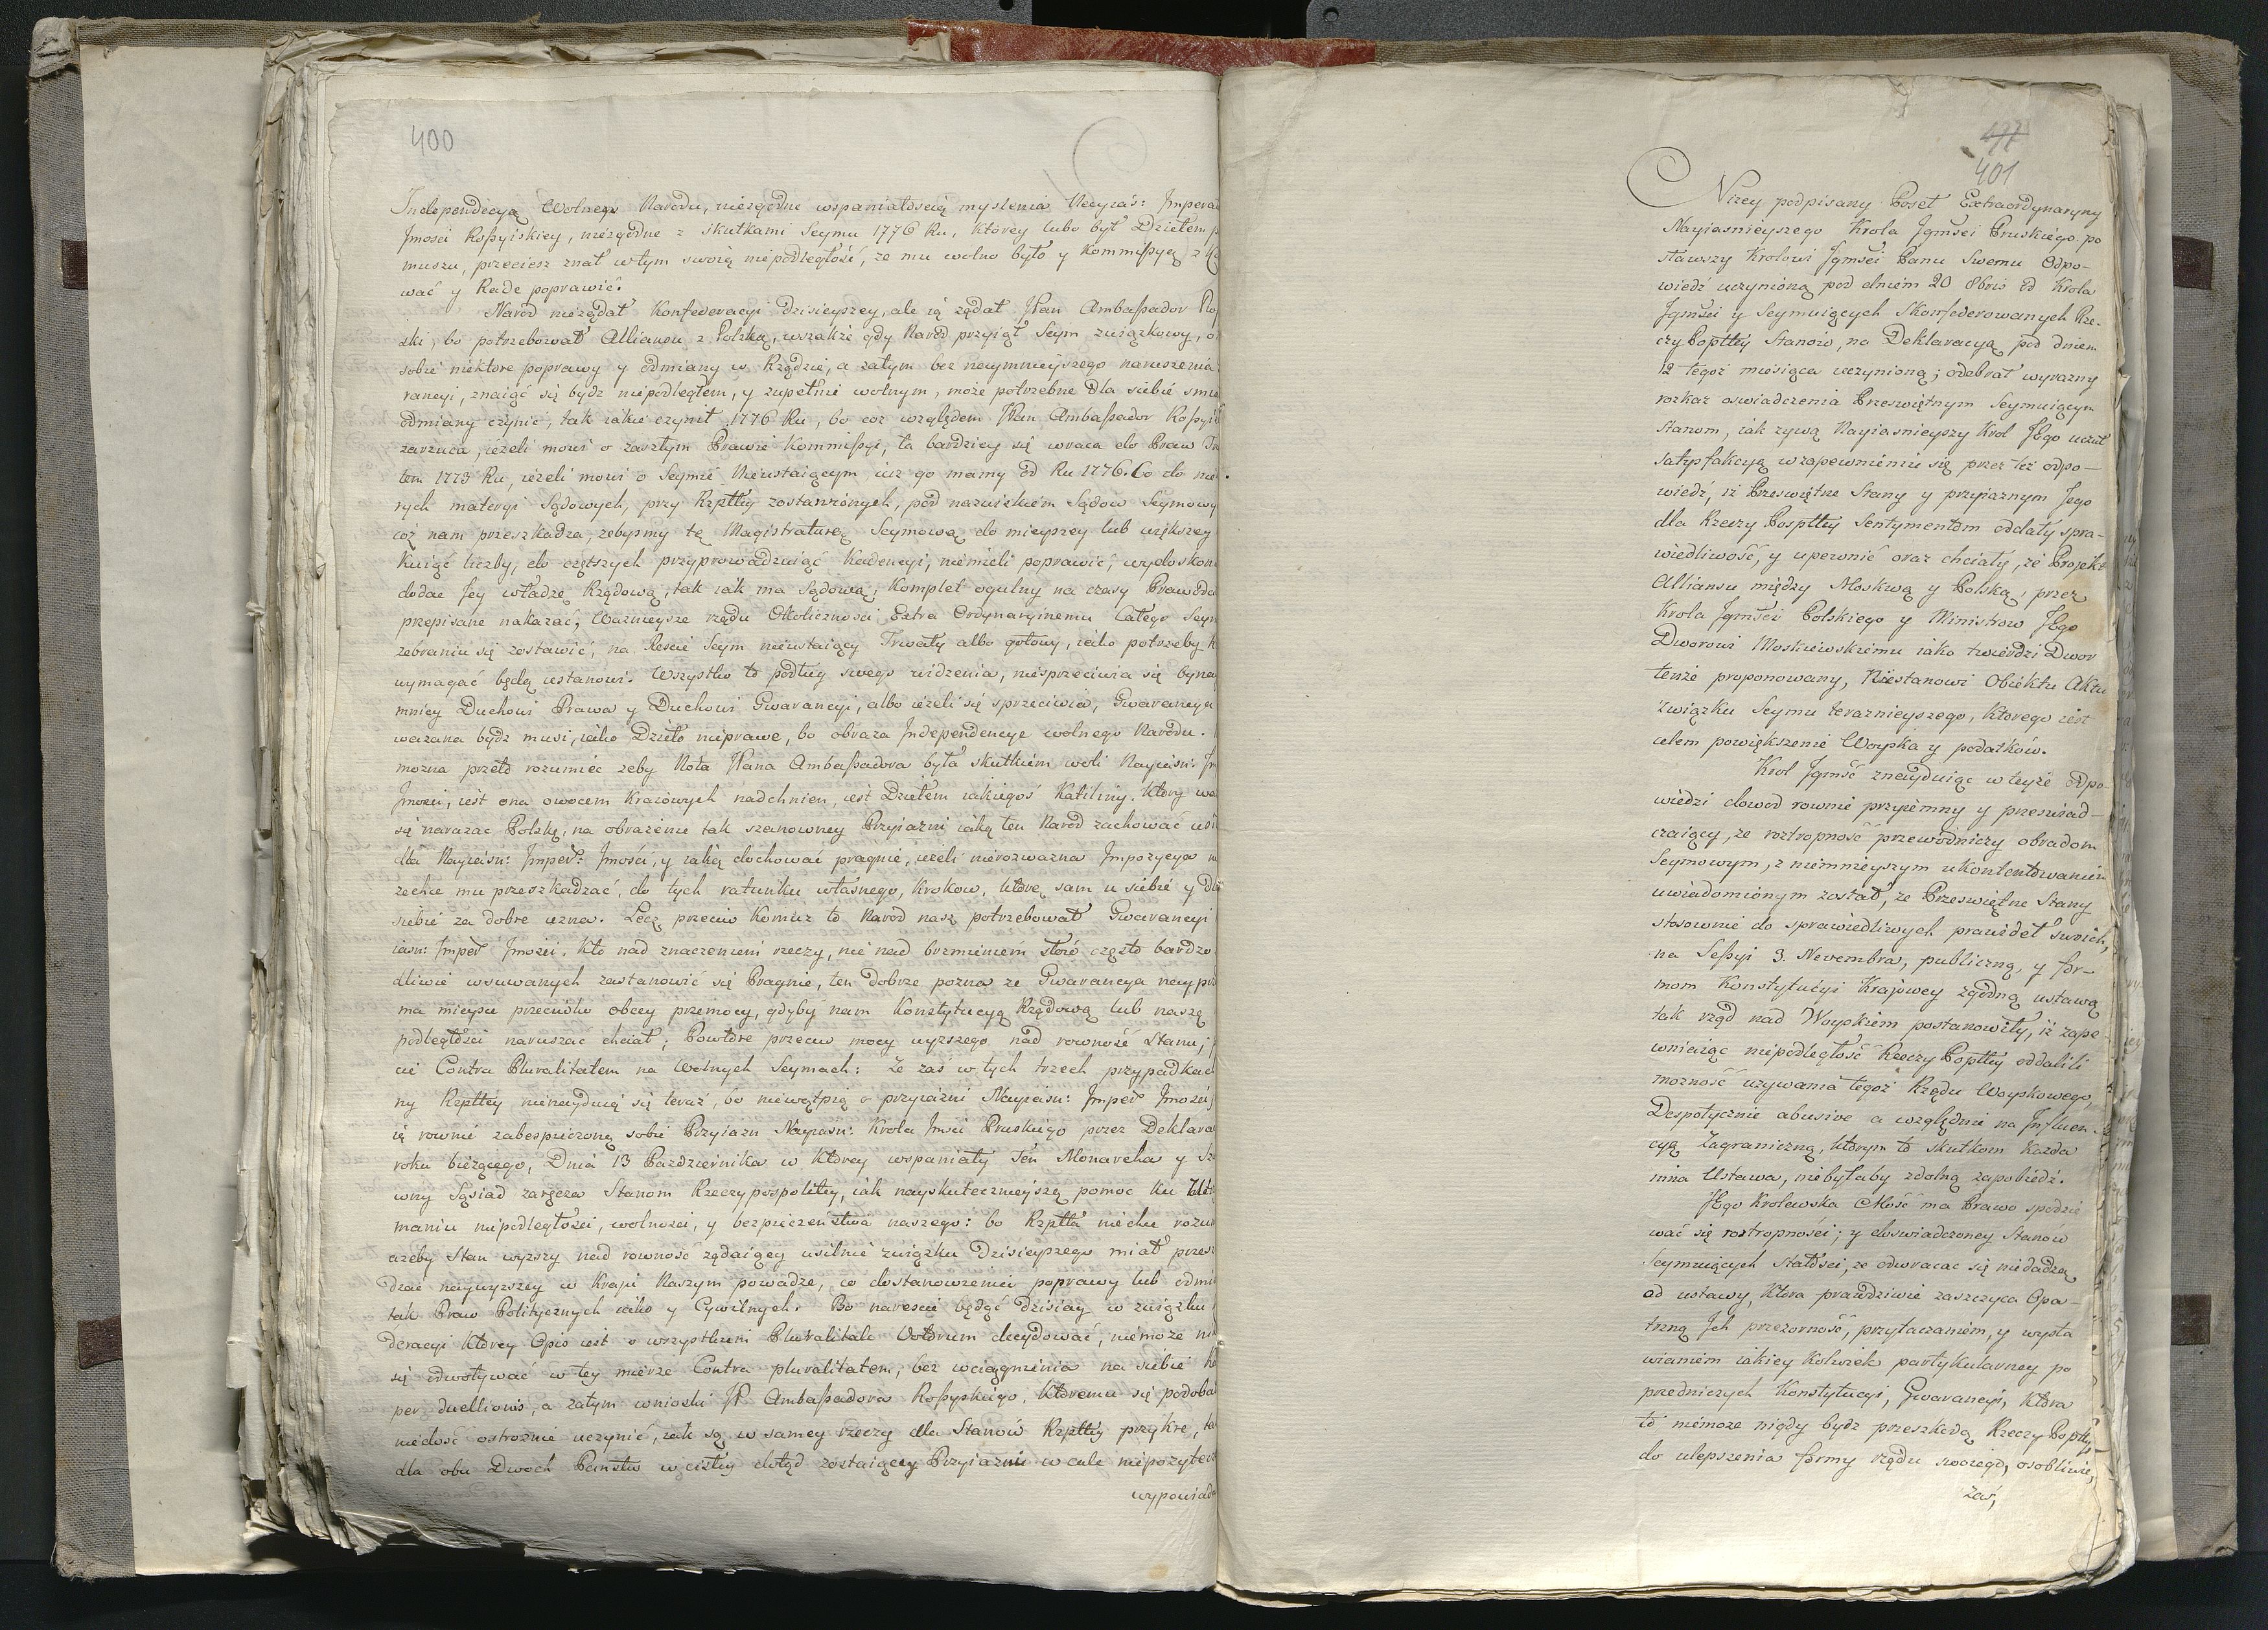 400
Independecyą Wolnego Narodu, niezgodne wspaniałością myslenia Nayiaś: Impera
Jmości Roßyiskiey, niezgodne z skutkami Seymu 1776 Ru, ktorey lubo był Dziełem
muszu, przeciesz znał wtym swoią niepodległość, ze mu wolno było y Kommißyą z
wać y Radę poprawić.
Narod nieżądał Konfederacyi dzisieyszey, ale ią żądał JPan Ambaßador
ski, bo potrzebował Alliansu z Polską, wszakże gdy Narod przyiął Seym związkowy,
sobie niektore poprawy y odmiany w Rządzie, a zatym bez naymnieyszego naruszenia
rancyi, znaiąc się bydz niepodległem, y zupełnie wolnym, może potrzebne dla siebie
odmiany czynić, tak iakie czynił 1776 Ru, bo coż względem JPan Ambaßador
zarzuca, ieżeli mowi o zaszłym Prawie Kommißyi, ta bardziey się wraca do Praw
tem 1773 Ru, ieżeli mowi o Seymie Nieustaiącym iuż go mamy od Ru 1776. Co do
rych materyi Sądowych, przy Rzpltey zostawionych, pod nazwiskiem Sądow Seymowy
coż nam przeszkadza, zebysmy tę Magistraturę Seymową do mieyszey lub większey
liczby, do częstszych przyprowadzaiąc Kadencyi, niemieli poprawić, wydoskon
dodac Jey władzę Rządową, tak iak ma Sądową, Komplet ogulny na czasy
przepisane nakazać, Waznieysze rządu Okoliczności Extra Ordynaryinemu Całego
zebraniu się zostawić, na Reście Seym nieustaiący Trwały albo gotowy, iako potrzeby
wymagać będą ustanowi. Wszystko to podług swego widzenia, niesprzeciwia się byna
mniey Duchowi Prawa y Duchowi Gwarancyi, albo ieżeli się sprzeciwia, Gwarancya
uwazana bydz musi, iako Dzieło nieprawe, bo obraza Independencye wolnego Narodu.
mozna przeto rozumieć zeby Nota JPana Ambaßadora była skutkiem woli Nayiaśn:
Jmości, iest ona owocem kraiowych nadchnien, iest Dziełem iakiegoś Katiliny, ktory
się narazac Polskę, na obrażenie tak szanowney Przyiazni iaką ten Narod zachować
dla Nayiaśn: Imper: Jmości, y iaką dochować pragnie, ieżeli nierozwazna Impozycya
zechce mu przeszkadzać, do tych ratunku własnego, krokow, ktore sam u siebie y
siebie za dobre uzna. Lecz przeciw komuz to Narod nasz potrzebował Gwarancyi
iasn: Imper Jmości. Kto nad znaczeniem rzeczy, nie nad brzmieniem słow często bardzo
dliwie wsuwanych zastanowić się Pragnie, ten dobrze pozna ze Gwarancya
ma mieysce przeciwko obcey przemocy, gdyby nam Konstytucyą Rządową lub naszę
podległości naruszac chciał; Powtore przeciw mocy wyzszego nad rownosć Stanu;
cie Contra Pluralitatem na Wolnych Seymach: Ze zaś w tych trzech przypadkach
ny Rzpltey nieznayduią się teraz, bo niewątpią o przyiazni Nayiaśn: Imper Jmości
ię rownie zabespieczoną sobie Przyiazn Nayiaśn: Krola Jmci Pruskiego przez Deklara
roku bieżącego, Dnia 13 Pazdziernika w ktorey wspaniały ten Monarcha y
wny Sąsiad zaręcza Stanom Rzeczypospolitey, iak nayskutecznieyszą pomoc ku
maniu niepodległości, wolności, y bezpieczeństwa naszego: bo Rzplta niechce
azeby Stan wyzszy nad rownosć ządaiący usilnie związku Dzisieyszego miał
dzać naywyzszey w Kraju Naszym powadze, co dostanowienia poprawy lub odmi
tak Praw Politycznych iako y Cywilnych. Bo nareście będąć dzisiay w związku
deracyi ktorey Opis iest o wszystkim Pluralitate Votorum decydować, niemoze
się odwoływać w tey mierze Contra pluralitatem, bez wciągnienia na siebie
per duellionis, a zatym wnioski JP Ambaßadora Roßyskiego, ktoremu się podoba
niedość ostroznie uczynić, iak są w samey rzeczy dla Stanow Rzpltey przykre,
dla obu Dwoch Panstw w ciisłey dotąd zostaiącey Przyiazni wcale niepożytec
wypowiada
477
401
Nizey podpisany Poseł Extraordynaryny
Nayiasnieyszego Krola Jgmści Pruskiego po
stawszy Krolowi Jgmści Panu Swemu Odpo-
wiedź uczynioną pod dniem 20 8bris od Krola
Jgmści y Seymuiących Skonfederowanych Rze-
czyPospltey Stanow, na Deklaracyą pod dniem
12 tegoż miesiąca uczynioną; odebrał wyrazny
rozkaz oswiadczenia Przeswiętnym Seymuiącym
Stanom, iak zywą Nayiasnieyszy Krol JEgo uczuł
satysfakcyą wzapewnieniu się przez też odpo-
wiedź, iż Przeswiętne Stany y przyiaznym Jego
dla Rzeczy Pospltey Sentymentom oddały spra-
wiedliwość, y upewnić oraz chciały, ze Projekt
Alliansu między Moskwą y Polską, przez
Krola Jgmści Polskiego y Ministrow JEgo
Dworowi Moskiewskiemu iako twierdzi Dwor
tenże proponowany, Niestanowi Obiektu Aktu
związku Seymu terazniejszego, ktorego iest
celem powiększenie Woyska y podatków.
Krol Jgmść znayduiąc w teyże odpo-
wiedzi dowod rownie przyiemny y przeswiad-
czaiący, ze roztropność przewodniczy obradom
Seymowym, z niemnieyszym ukontentowaniem
uwiadomionym został, ze Przeswiętne Stany
stosownie do sprawiedliwych prawideł swoich,
na Seßyi 3. Novembra, publiczną, y for-
mom Konstytucyi Krajowey zgodną ustawą
tak rząd nad Woyskiem postanowiły, iż zape-
wniaiąc niepodległość RzeczyPospltey oddalili
mozność uzywania tegoż Rządu Woyskowego,
Despotycznie abusive a względnie na Influen-
cyą Zagraniczną, ktorym to skutkom kazda
inna Ustawa, niebyłaby zdolną zapobiedź.
JEgo Krolewska Mość ma Prawo spodzie
wać się roztropności, y doswiadczoney Stanów
Seymuiących Stałości, ze odwracac się niedadzą
od ustawy, ktora prawdziwie zaszczyca Opa-
trzną Ich przezorność, przytaczaniem, y wysta
wianiem iakiey kolwiek partykularney po
przedniczych Konstytucyi, Gwarancyi, ktora
to niemoze nigdy bydz przeszkodą RzeczyPospltey
do ulepszenia formy rządu swoiego, osobliwie,
zaś,